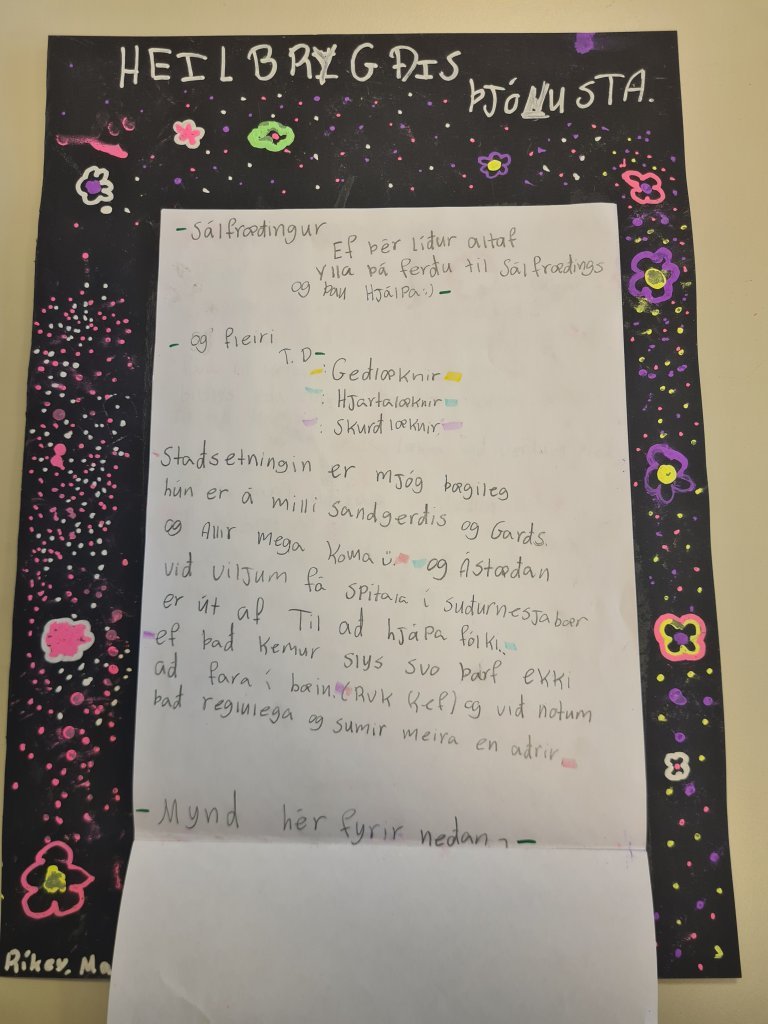 HEILBRYGÐIS
ÞJÓNUSTA.
- Sálfrædingur
Ef þér líður altaf
Ylla þá ferðu til Sálfræðings
og þau Hjálpa:) -
- og fleiri
T.D -
: Geðlæknir
: Hjartalæknir
: Skurðlæknir
Staðsetningin er mjóg þægileg
hún er á milli Sandgerðis og Garðs.
og Allir mega Koma ü. og Ástæðan
við viljum fá spítala í suðurnesjabær
er út af Til að hjápa fólki.
ef það Kemur slys svo þarf ekki
að fara í bæin. (RVK Kef) og við notum
það reglulega og sumir meira en aðrir
- Mynd hér fyrir neðan -
Rikey. Ma